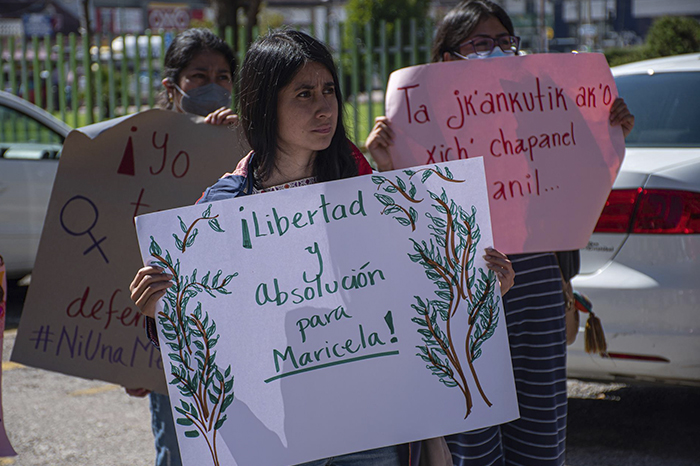 ¡Yo
defen
#NiUnaM
¡Libertad
y
absolución
para
Maricela!
Ta jk'ankutik ak'o
xich' chapanel
anil...